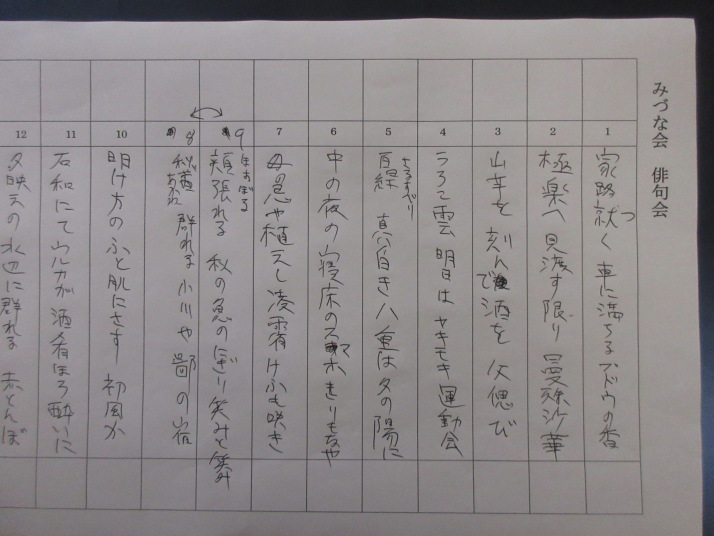 みづな会 俳句会
1 家路就く 車に満ちるブドウの香
つ
2 極楽へ 見渡す限り 曼珠沙華
3 山芋を 刻んで酒を 父偲び
4 うろこ雲 明日は ヤキモキ 運動会
5 真白き八重は夕の陽に
さるすべり
6 中の夜の 寝床の
7 母の息や植えし凌霄けふも咲き
9 頬張れる 秋の魚の にぎり笑みと笑み
ほおばる
8 秘茜 群れる 小川や 鄙の宿
あかね
10 明け方の ふと肌にさす 初風か
11 石和にて ウルカが酒肴ほろ酔いに
12 夕映えの 水辺に群れる 赤とんぼ